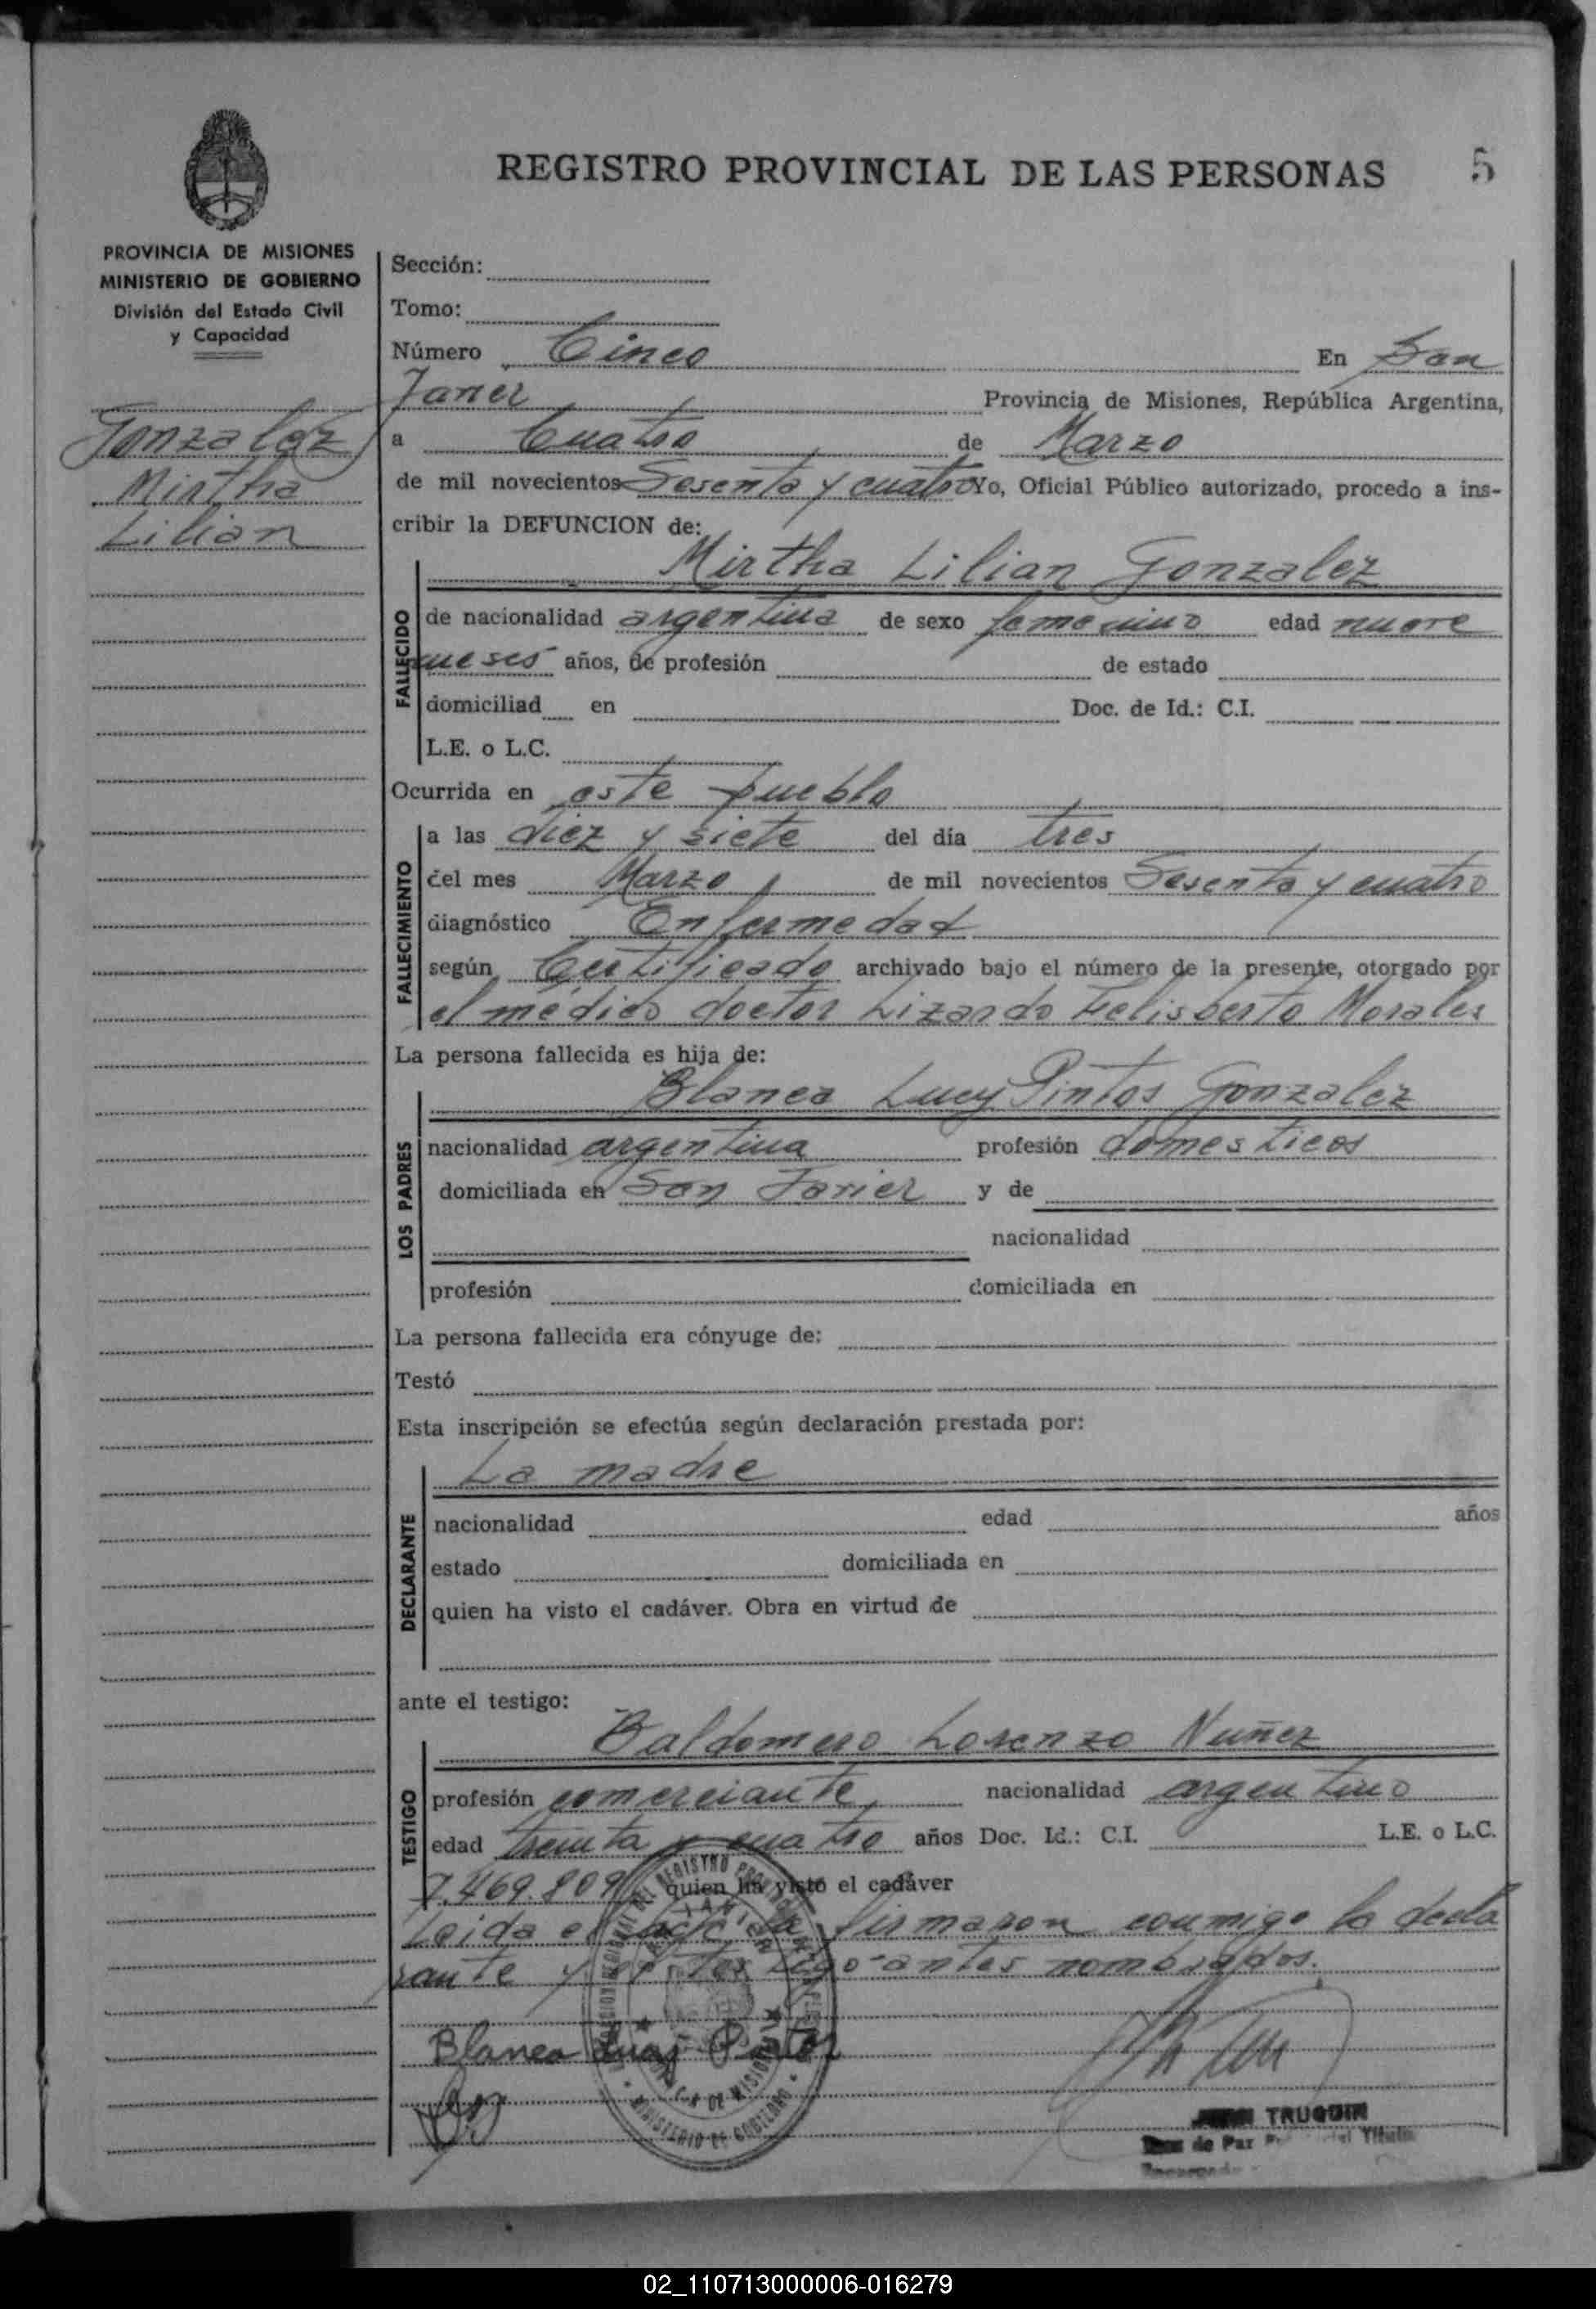 REGISTRO PROVINCIAL DE LAS PERSONAS
5
PROVINCIA DE MISIONES
MINISTERIO DE GOBIERNO
División del Estado Civil
y Capacidad
Gonzalez
Mirtha
Lilian
Sección:
Tomo:
Número Cinco En San
Javier Provincia de Misiones, República Argentina,
a Cuatro de Marzo
de mil novecientos Sesenta y cuatro Yo, Oficial Público autorizado, procedo a ins-
cribir la DEFUNCION de:
Mirtha Lilian Gonzalez
FALLECIDO
de nacionalidad argentina de sexo femenino edad nueve
meses años, de profesión de estado
domiciliad en Doc. de Id.: C.I.
L.E. o L.C.
Ocurrida en este pueblo
FALLECIMIENTO
a las diez y siete del día tres
del mes Marzo de mil novecientos Sesenta y cuatro
diagnóstico Enfermedad
según Certificado archivado bajo el número de la presente, otorgado por
el médico doctor Lizardo Felisberto Morales
La persona fallecida es hija de:
Blanca Lucy Pintos Gonzalez
LOS PADRES
nacionalidad argentina profesión domesticos
domiciliada en San Javier y de
nacionalidad
profesión domiciliada en
La persona fallecida era cónyuge de:
Testó
Esta inscripción se efectúa según declaración prestada por:
La madre
DECLARANTE
nacionalidad edad años
estado domiciliada en
quien ha visto el cadáver. Obra en virtud de
ante el testigo:
Baldomero Lorenzo Nuñez
TESTIGO
profesión comerciante nacionalidad argentino
edad treinta y cuatro años Doc. Id.: C.I. L.E. o L.C.
7.469.809 quien ha visto el cadáver
Leida el acta, la firmaron conmigo la decla
rante y el testigo antes nombrados.
Blanca Lucy Pintos
JUAN TRUQUIN
de Paz
02_110713000006-016279